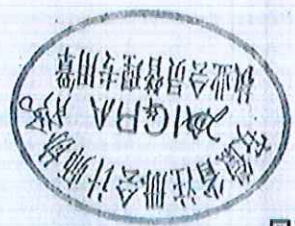 安徽省注册会计师协会
AHICPA
执业会员管理专用章